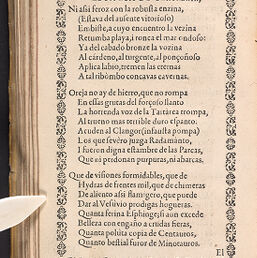 Ni assi feroz con la robusta enzina,
(Estava del ausente vitorioso)
Embiste, a cuyo encuentro la vozina
Retumba playa, i ronca el mar ondoso:
Ya del cabado bronze la vozina
Al cárdeno, al urgente, al ponçoñoso
Aplica labio, tremen las eternas
A tal ribombo concavas cavernas.
Oreja no ay de hierro, que no rompa
En essas grutas del forçoso llanto
La horrenda voz de la Tartarea trompa,
Al trueno mas terrible duro espanto:
Acuden al Clangor (infausta pompa)
Los que severo juzga Radamanto,
I fueron digna estambre de las Parcas,
Que ni perdonan purpuras, ni abarcas.
Que de visiones formidables, que de
Hydras de frentes mil, que de chimeras
De aliento assi flamigero, que puede
Dar al Vesuvio prodigas hogueras.
Quanta ferina Esphinge; si aun excede
Belleza con engaño a crudas fieras,
Quanta poluta copia de Centauros,
Quanto bestial furor de Minotauros.
El